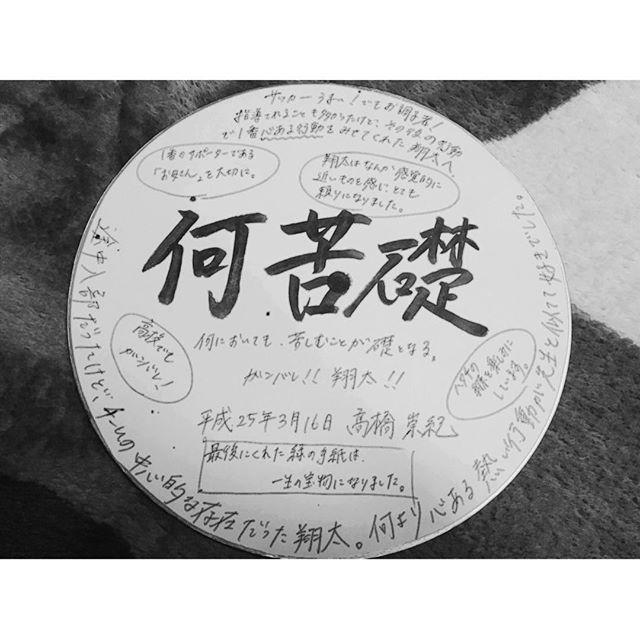 サッカーうまい!でもお調子者!
指導されることも多かったけど、その後の言動
で1番心ある行動をみせてくれた翔太へ
1番のサポーターである
「お母さん」を大切に。
翔太はなんか感覚的に
近いものを感じ、とても
頼りになりました。
何苦礎
何においても、苦しむことが礎となる。
ガンバレ!! 翔太!!
高校でも
ガンバレ!
しています。
平成25年3月16日 高橋崇紀
最後にくれた緑の手紙は、
一生の宝物になりました。
途中入部だったけど、チームの中心的な存在だった翔太。何より心ある熱い行動が先生と似てて好きでした。